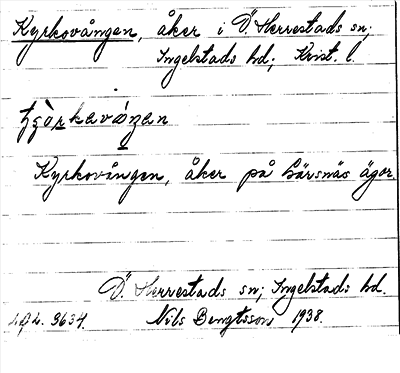 Kyrkovången, åker i Ö. Herrestads sn;
Ingelstads hd; Krist. l.
Kyrkovången, åker på Lärsnäs ägor.
Ö. Herrestads sn; Ingelstads hd.
Nils Bengtsson 1938.